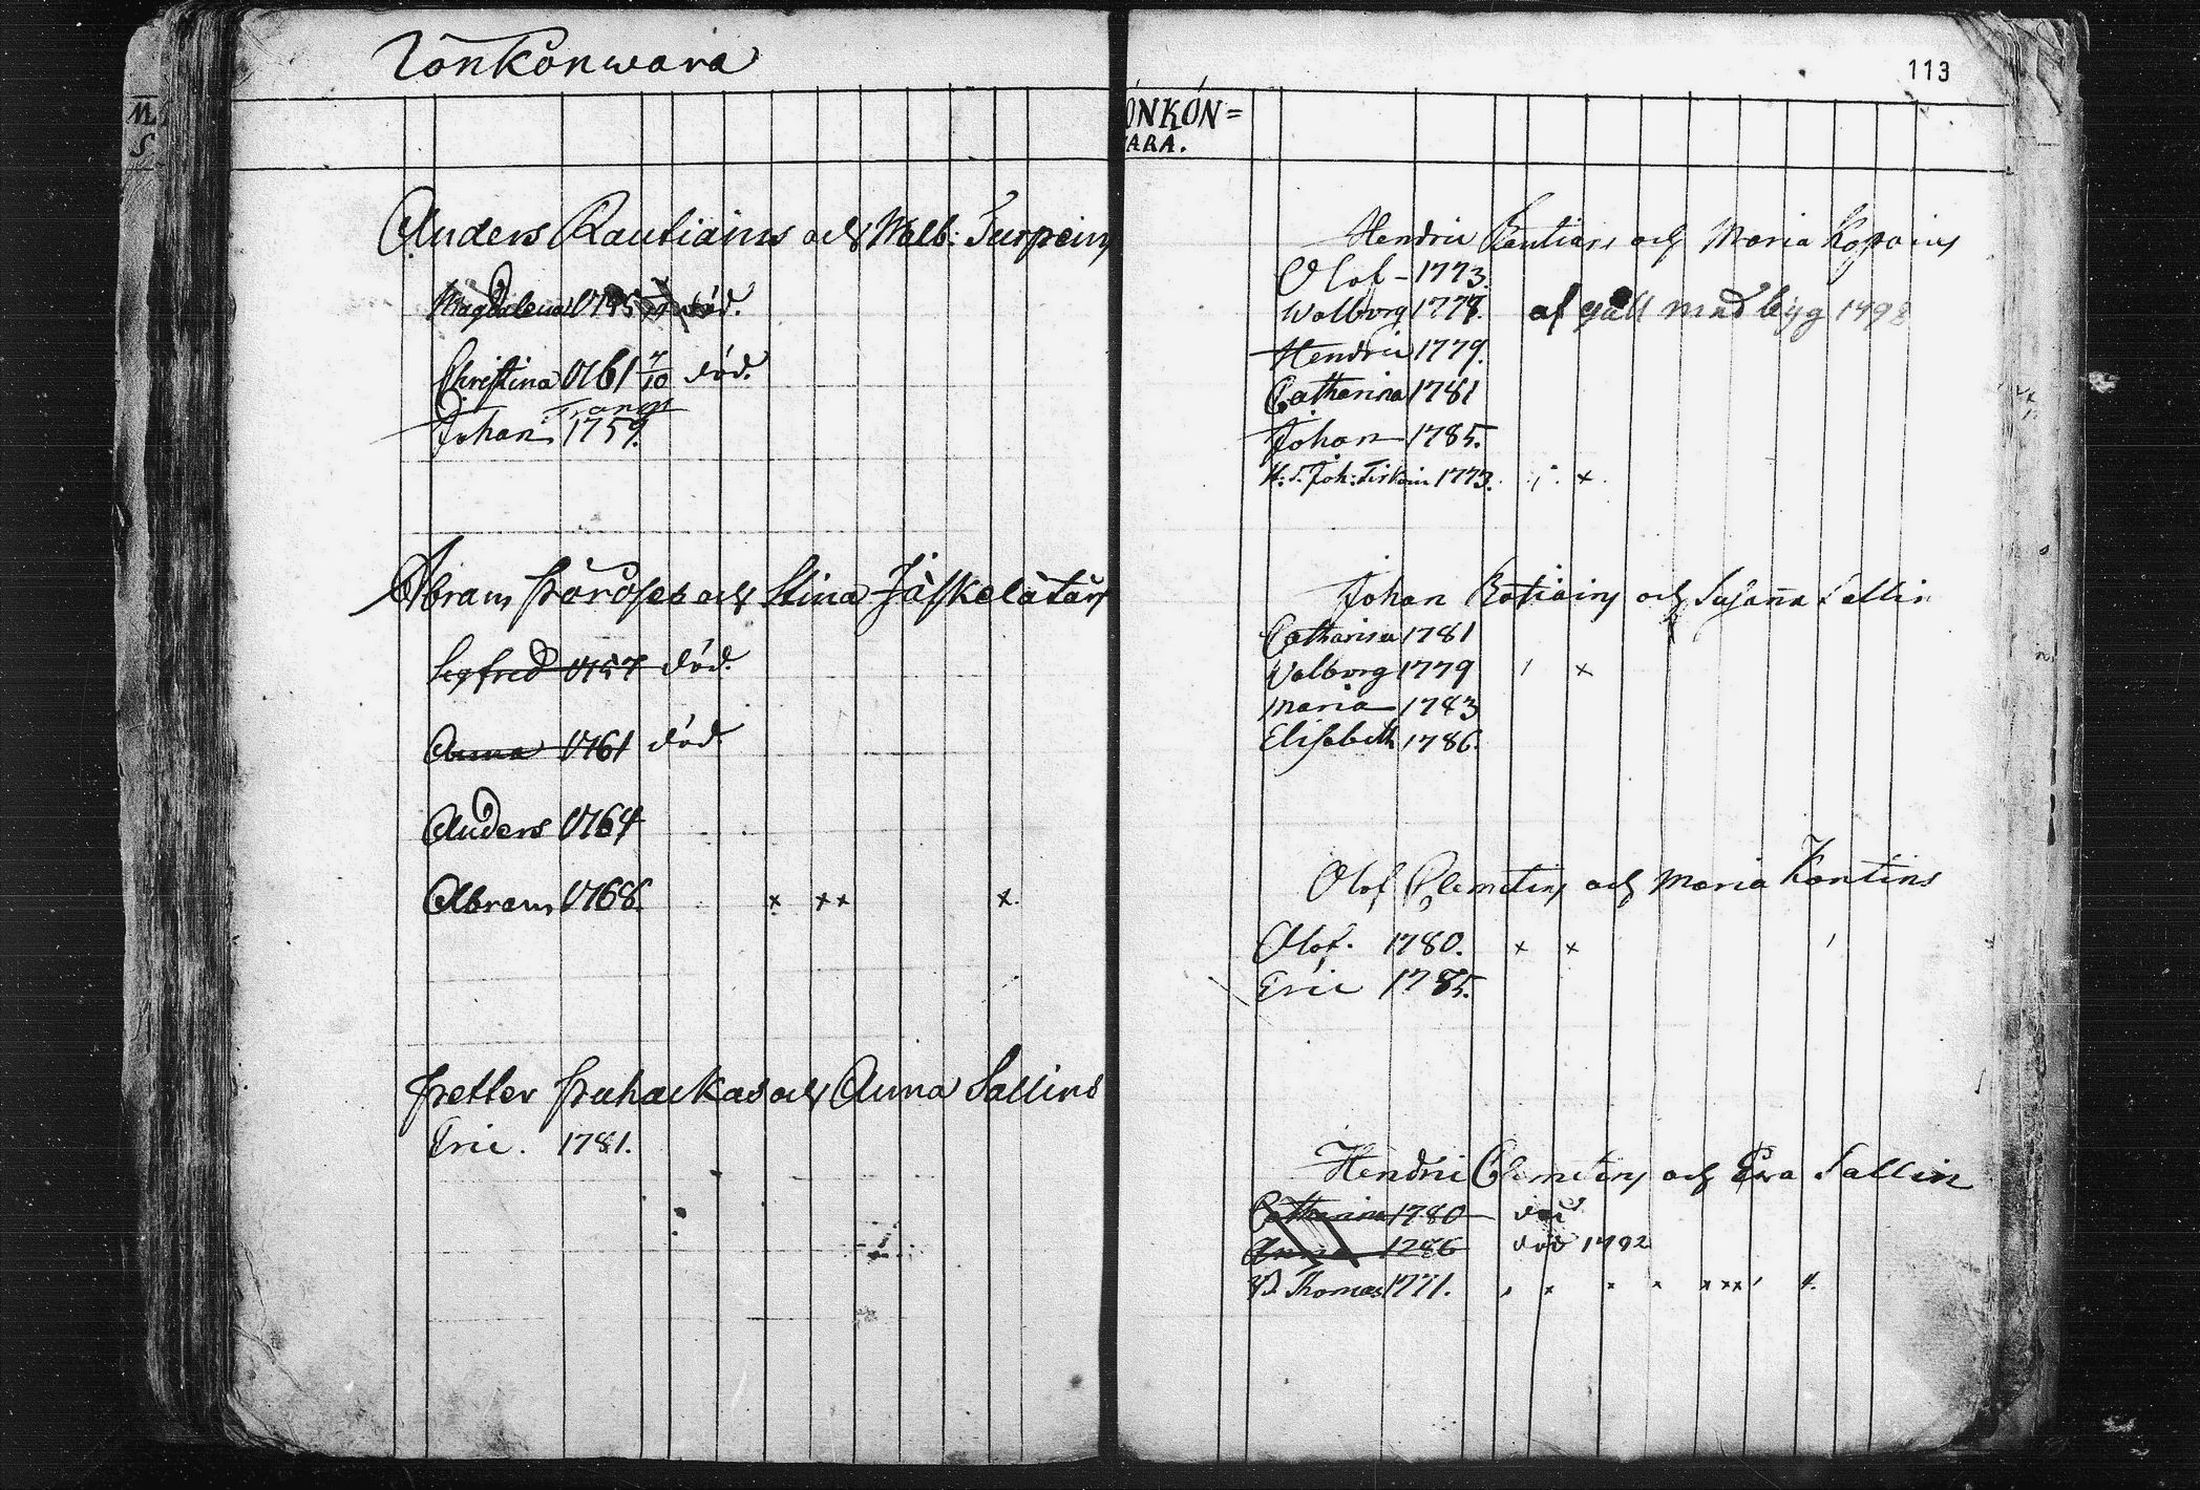 Lönkönwara
Anders Rautiains och Walb: Turpeins
Magdalena 1745 död.
Christina 1761 7/10 död.
Frånv
Johan 1759.
Abram och Stina Jäskelätär
Segfred 1757 död.
Anna 1761 död.
Anders 1764
Abram 1768. x xx x.
Petter Puhackas och Anna Sallins
Eric. 1781.
113
ÖNKÖN=
ARA.
Hendric Rautians och Maria
Olof - 1773.
Walborg 1777. af gått med 1798
Hendric 1779.
Catharina 1781
Johan 1785.
Joh: 1773. x
Johan Rotiains och Susanna Sallin
Catharina 1781
Walborg 1779 x
Maria 1783
Elisabeth 1786.
Olof Clemetins och Maria Kontins
Olof. 1780. x x
Eric 1785.
Hendric Clemetins och Ewa Sallin
Catharina 1780 död
Anna 1786 död 1792
Thomas 1771. x x x xxx